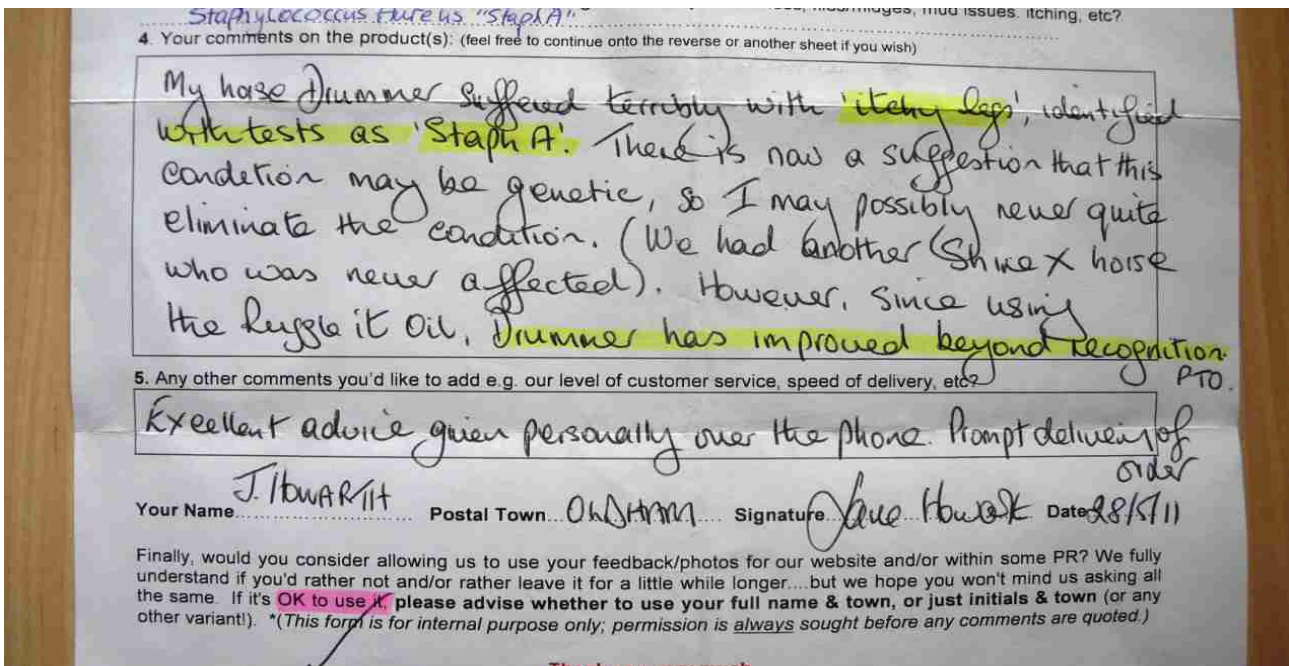 Staphylococcus Aureus "Staph A"
mud issues. itching, etc?
4. Your comments on the product(s): (feel free to continue onto the reverse or another sheet if you wish)
My horse Drummer suffered terribly with 'itchy legs', identified
with tests as 'Staph A'. There is now a suggestion that this
condition may be genetic, so I may possibly never quite
eliminate the condition. (We had another (Shire X horse
who was never affected). However, since using
the Huggle it Oil, Drummer has improved beyond recognition.
PTO.
5. Any other comments you'd like to add e.g. our level of customer service, speed of delivery, etc?
Excellent advice given personally over the phone. Prompt delivery of
order
Your Name J. HOWARTH Postal Town OLDHAM Signature Jane Howarth Date 28/5/11
Finally, would you consider allowing us to use your feedback/photos for our website and/or within some PR? We fully
understand if you'd rather not and/or rather leave it for a little while longer....but we hope you won't mind us asking all
the same. If it's OK to use it, please advise whether to use your full name & town, or just initials & town (or any
other variant!). *(This form is for internal purpose only; permission is always sought before any comments are quoted.)